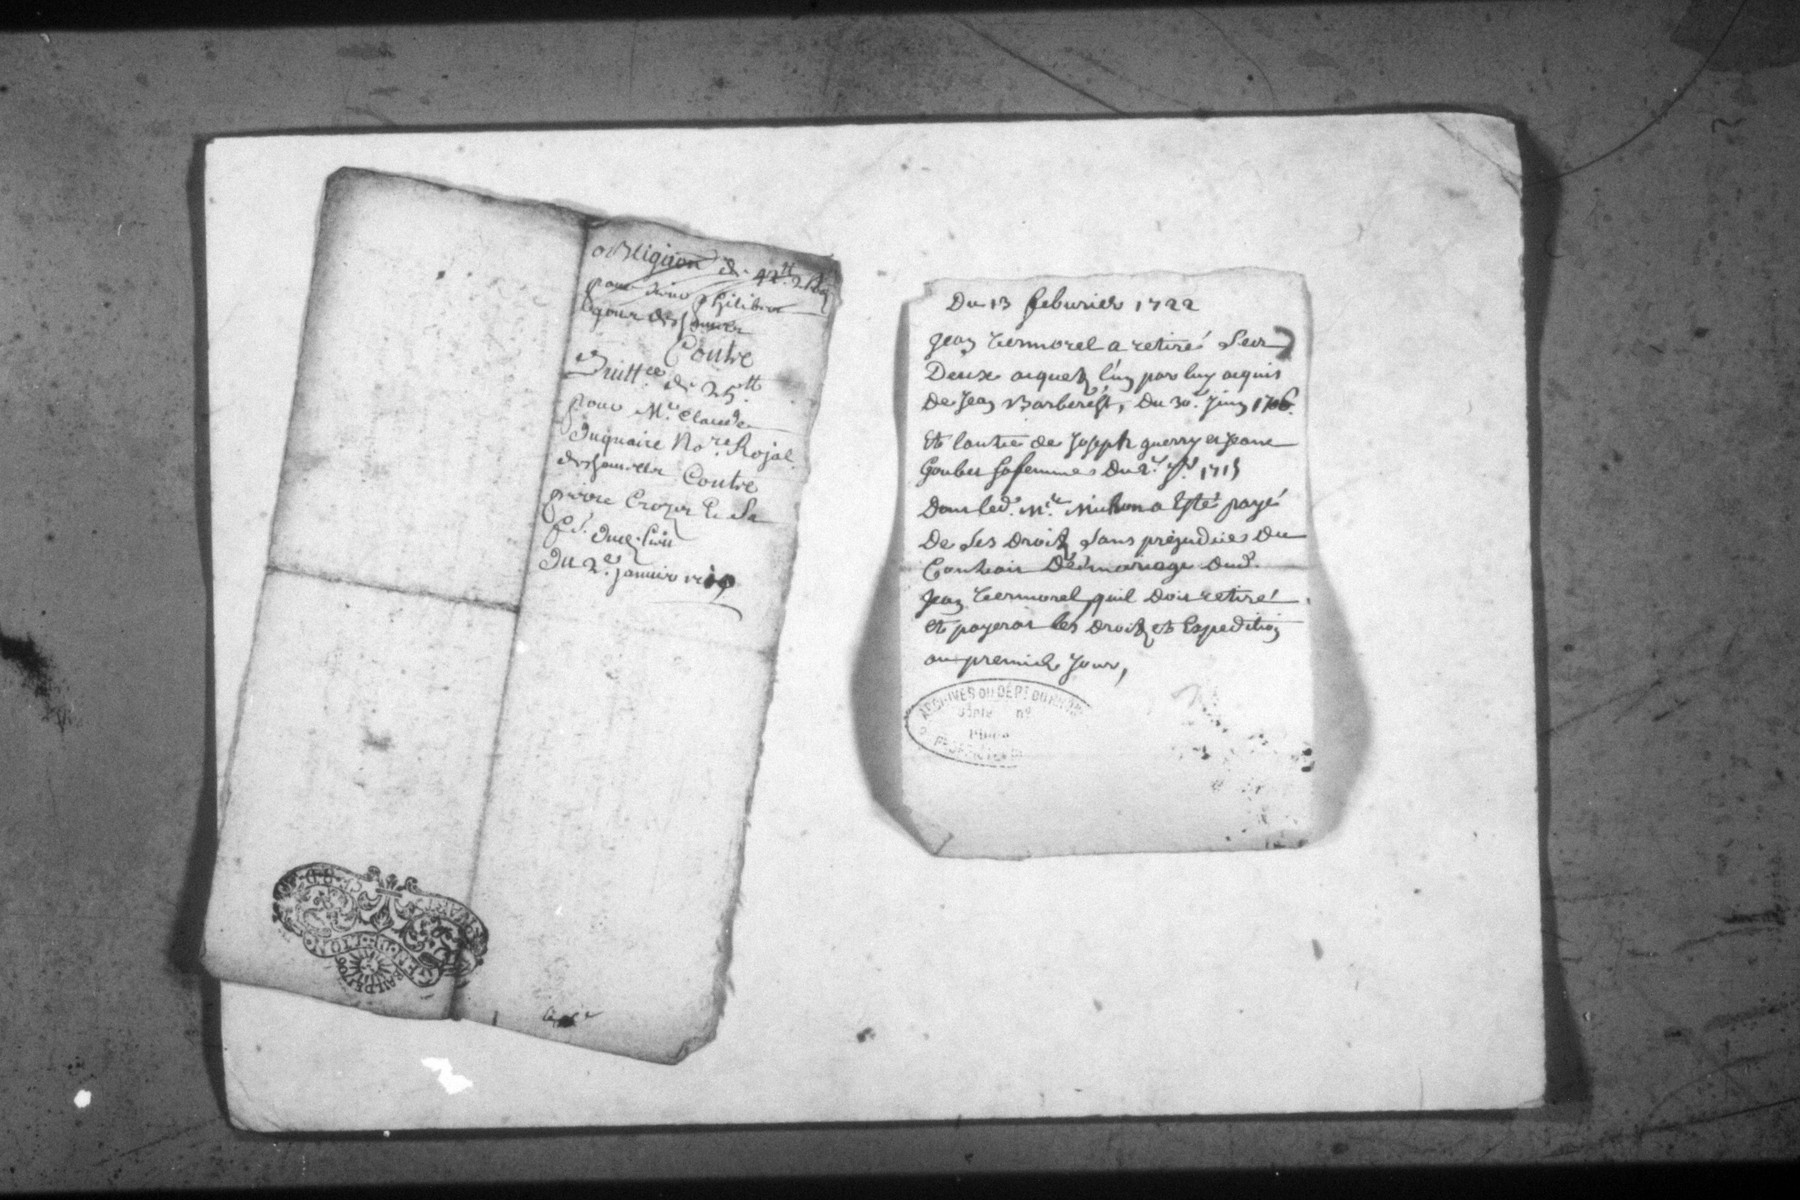 obligaon de 42tt 2s
pour sieur philibert
Contre
Quittce de 25tt
pour Me Claude
duquaire Nore Rojal
Contre
pierre Crozet Et Sa
fe. dud. lieu
du 2e. janvier
Du 13 feburier 1722
jean Termorel a retiré Ses
Deux aquetz l'un par luy aquis
De jean Barberest, Du 30e. juin 1706.
Et lautre de joseph guerry et jeane
Goubet sa femme Du 2e. 1715
Dont led. Me. Michon a Esté payé
De Ses Droitz Sans préjudices Du
Contrait De mariage dud.
jean Termorel quil Doit retiré
Et payerat les Droitz et Expedition
au premier jour,
ARCHIVES DU DÉPT DU RHÔNE
Série no
Pièce
GEN. DE LION